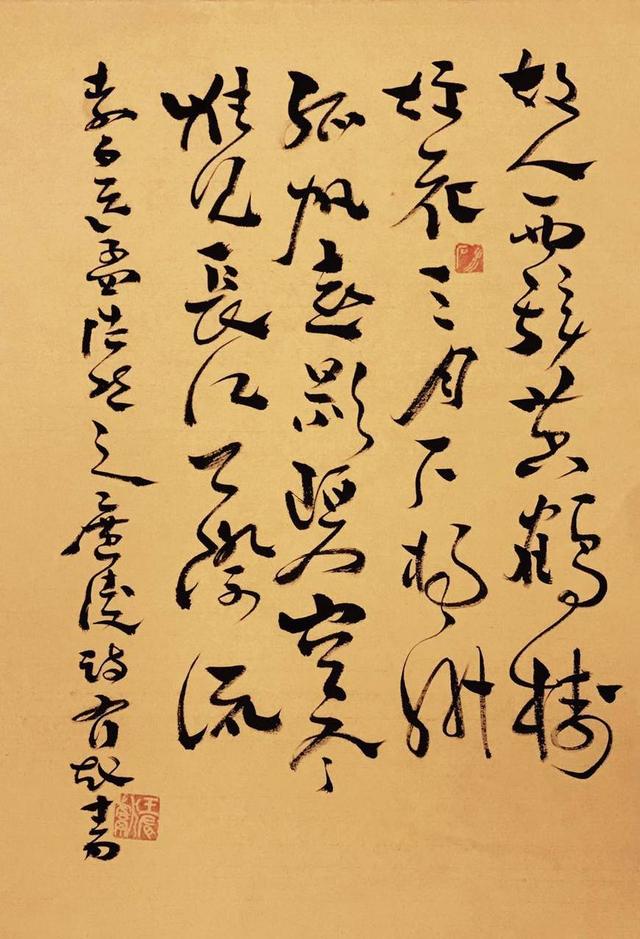 故人西辭黃鶴樓
烟花三月下揚州
孤帆遠影碧空尽
惟見長江天際流
孟浩然之廣陵詩 書